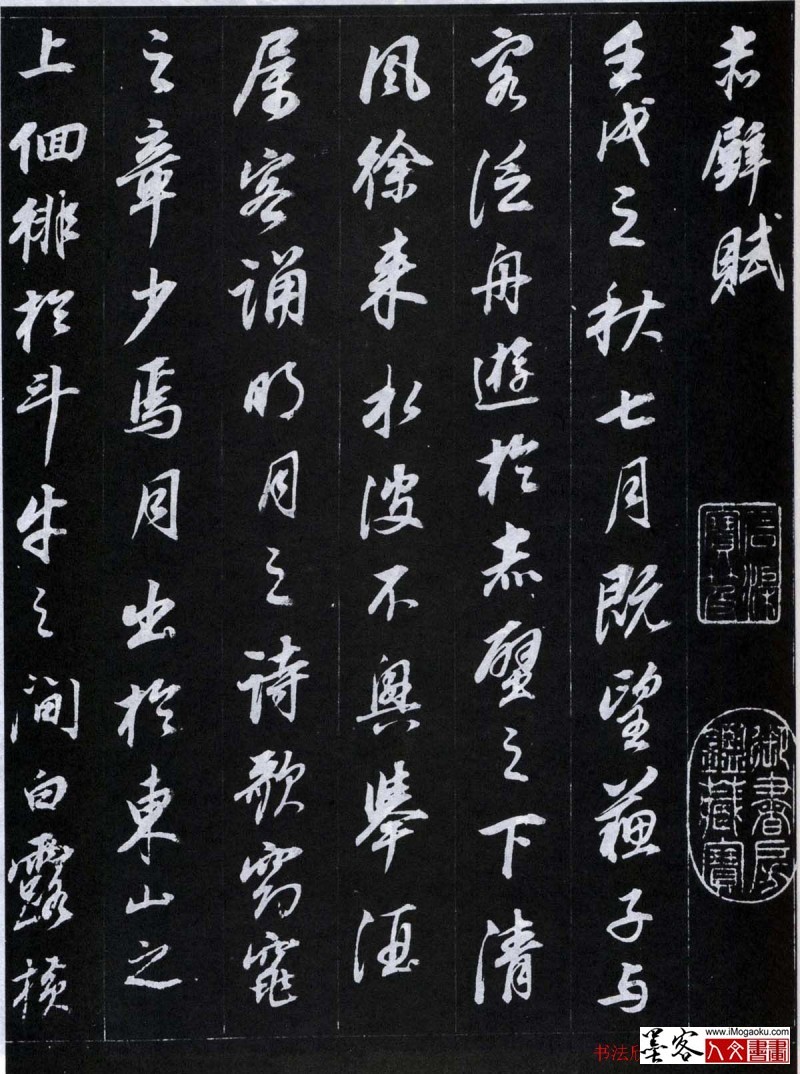 赤壁賦
壬戌之秋七月既望蘇子与
客泛舟遊於赤壁之下清
風徐来水波不興舉酒
属客誦明月之詩歌窈窕
之章少焉月出於東山之
上佪徘於斗牛之間白露横
石渠寶笈
御書房鑑藏寶
书法
www.iMogaoku.com
墨客人文書畫